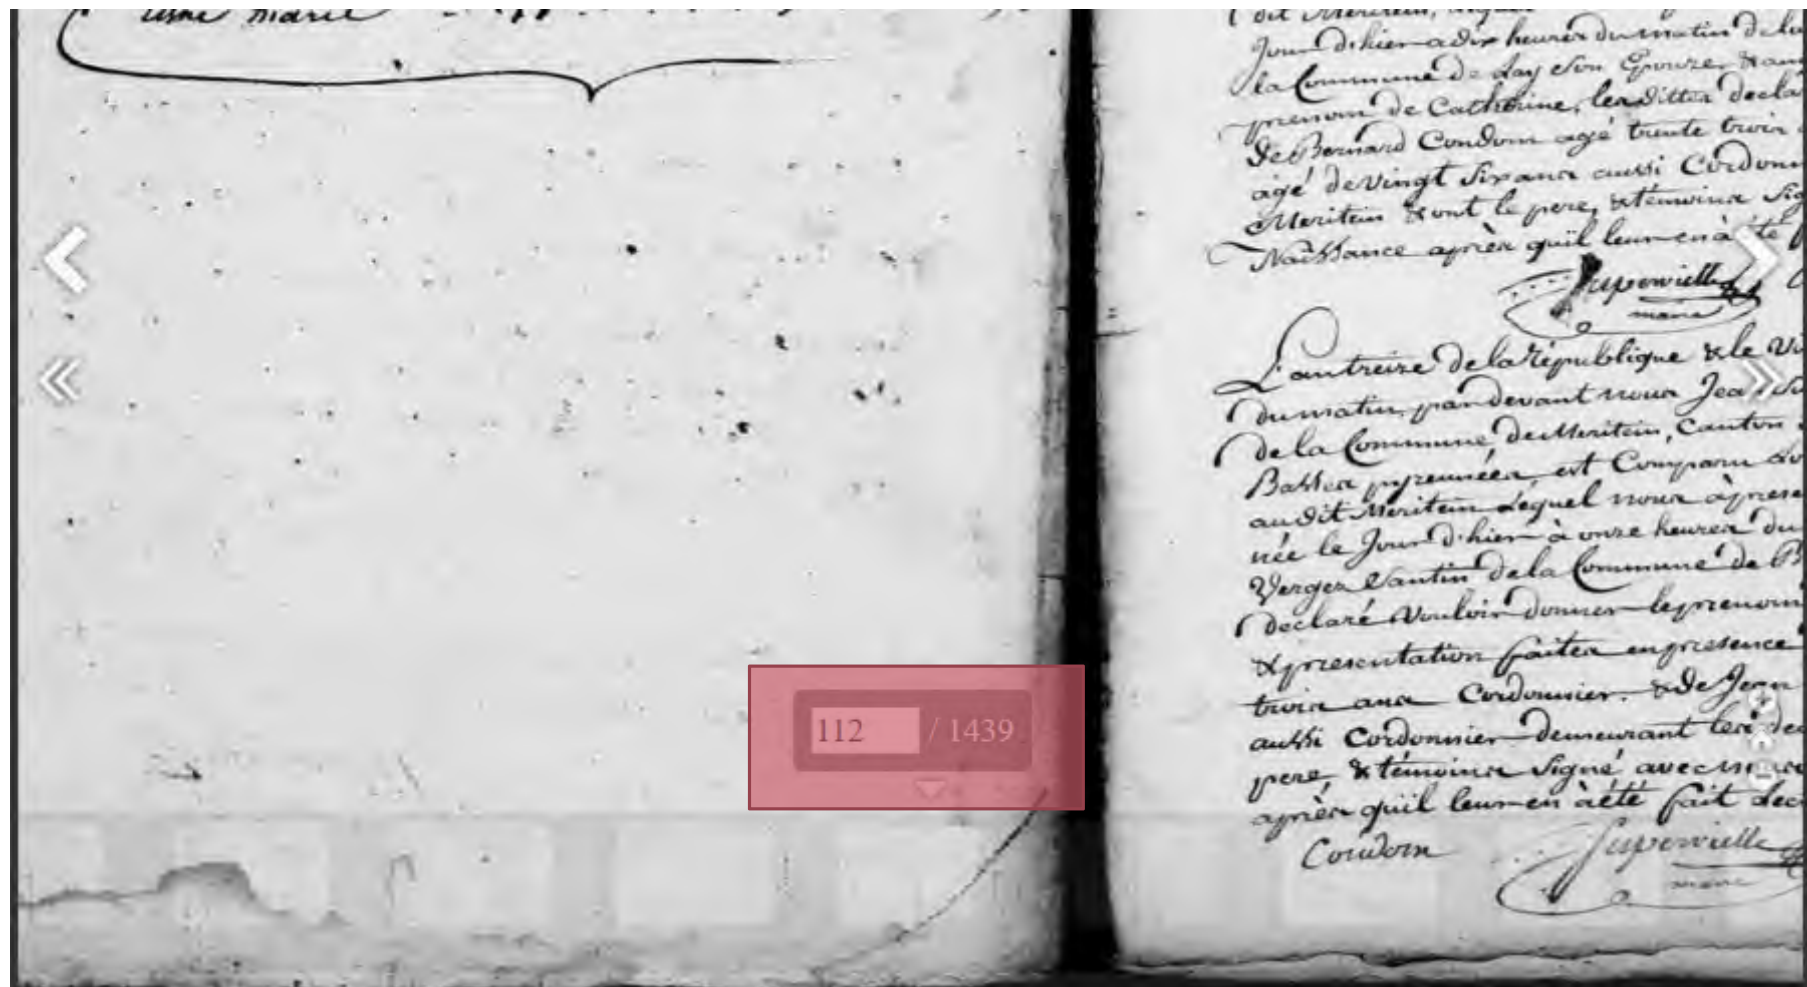 usne marie
dit Meritein,
Jour d'hier a dix heures du matin de la
la Commune de Lay son Epouze, & au
prenom de Catherine, lesdittes decla
de Bernard Condom agé trente trois
agé de vingt six ans aussi Cordonn
Meritein & ont le pere, & témoins sig
Naissance après quil leur en à été
Superwielle
maire
L'an treize de la République & le Vi
du matin, pardevant nous Jea
de la Commune de Meritein, Canton
Basses pyrennées, est Comparu
audit Meritein Lequel nous à prese
née le Jour d'hier à onze heures du
Verges Santin de la Commune de B
declaré Vouloir donner le prenom
& presentation faites en presence
trois ans Cordonnier. & de Jean
aussi Cordonnier demeurant les deu
pere, & témoins signé avec nous
après quil leur en à été fait Lec
Condom
Superwielle
maire
112 / 1439